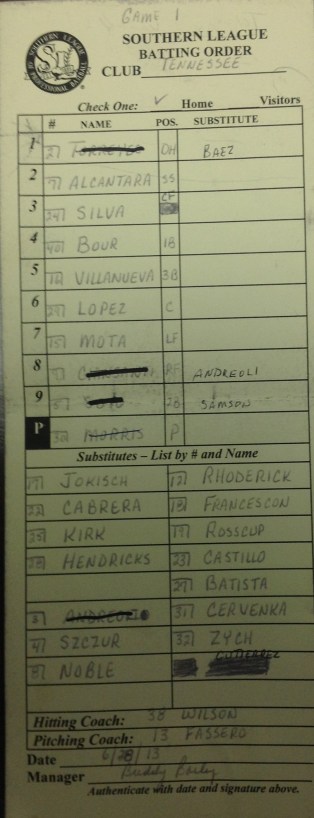 GAME 1
SOUTHERN LEAGUE
BATTING ORDER
CLUB TENNESSEE
SOUTHERN LEAGUE
OF PROFESSIONAL BASEBALL
SL
Check One: ✓ Home Visitors
# NAME POS. SUBSTITUTE
1 DH BAEZ
2 ALCANTARA SS
3 SILVA CF
4 BOUR 1B
5 VILLANUEVA 3B
6 LOPEZ C
7 MOTA LF
8 RF ANDREOLI
9 SOTO 2B SAMSON
P MORRIS P
Substitutes – List by # and Name
JOKISCH RHODERICK
CABRERA FRANCESCON
KIRK ROSSCUP
HENDRICKS CASTILLO
BATISTA
ANDREOLI CERVENKA
SZCZUR ZYCH
NOBLE GUTIERREZ
Hitting Coach: 38 WILSON
Pitching Coach: 13 FASSERO
Date 6/28/13
Manager Buddy Bailey
Authenticate with date and signature above.